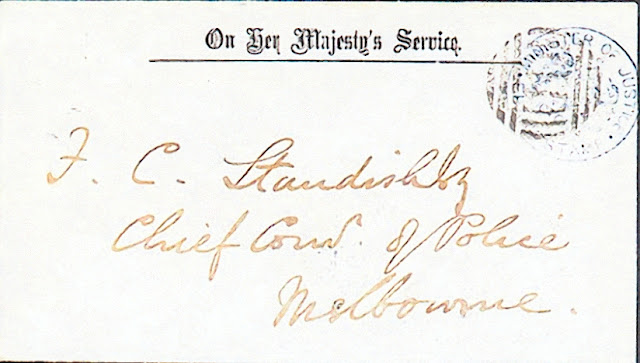 On Her Majesty's Service.
MINISTER OF JUSTICE
STAMP
F. C. Standish Esq
Chief Com.r of Police
Melbourne.